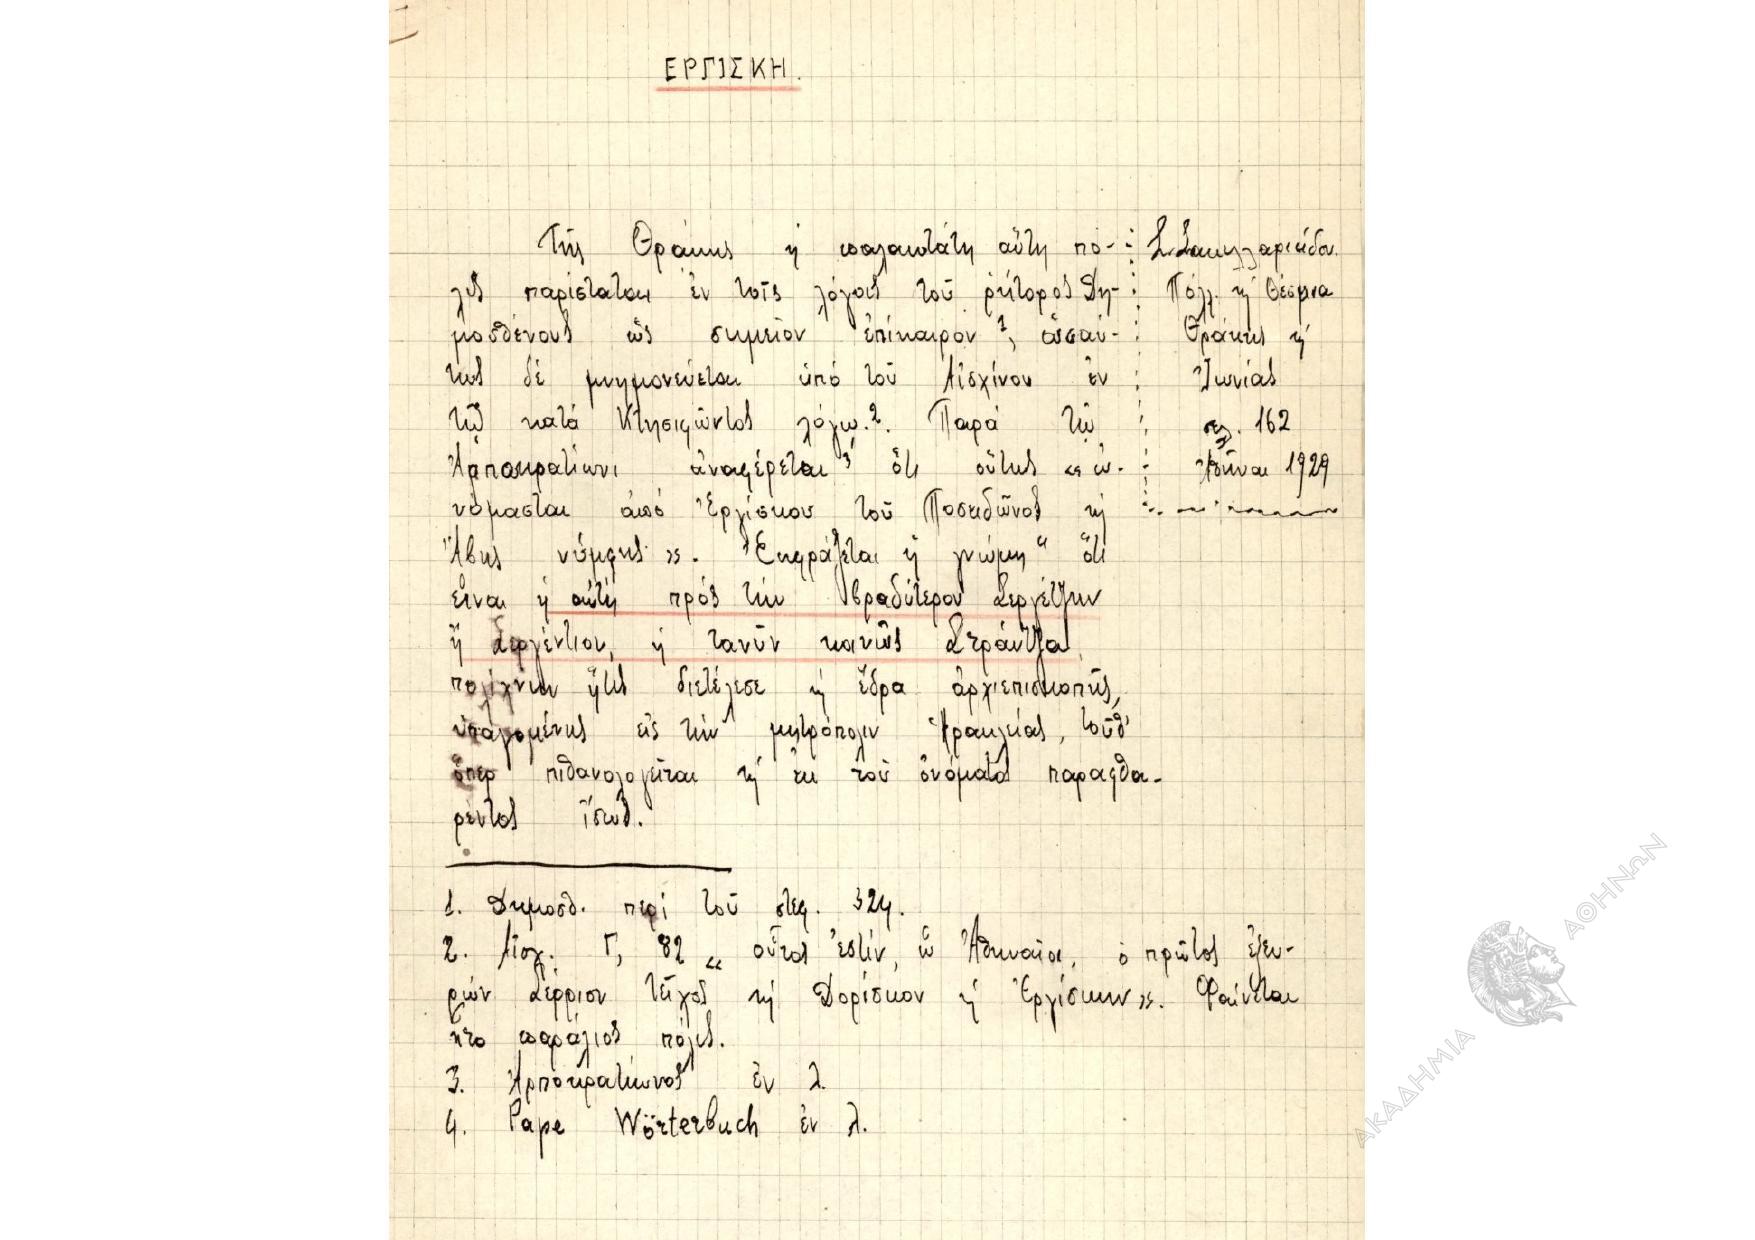 ΕΡΓΙΣΚΗ.
Τῆς Θρᾴκης ἡ παλαιοτάτη αὕτη πό-
λις παρίσταται ἐν τοῖς λόγοις τοῦ ῥήτορος Δη-
μοσθένους ὡς σημεῖον ἐπίκαιρον 1, ὡσαύ-
τως δὲ μνημονεύεται ὑπὸ τοῦ Αἰσχίνου ἐν
τῷ κατὰ Κτησιφῶντος λόγῳ. 2. Παρὰ τῷ
Ἁρποκρατίωνι ἀναφέρεται 3 ὅτι οὕτως « ὠ-
νόμασται ἀπὸ Ἐργίσκου τοῦ Ποσειδῶνος κὴ
Ἄβης νύμφης ». Ἐκφράζεται ἡ γνώμη 4 ὅτι
εἶναι ἡ αὐτὴ πρὸς τὴν βραδύτερον Σεργέτζην
ἢ Σεργέντιον, ἡ τανῦν κοινῶς Στράντζα,
πολίχνην ἥτις διετέλεσε κὴ ἕδρα ἀρχιεπισκοπῆς,
ὑπαγομένης εἰς τὴν μητρόπολιν Ἡρακλείας, τοῦθ'
ὅπερ πιθανολογεῖται κὴ ἐκ τοῦ ὀνόματος παραφθα-
ρέντος ἴσως.
Σ. Σακελλαριάδου.
Πόλλ. κὴ Θέσμια
Θράκης κὴ
Ἰωνίας
σελ. 162
Ἀθῆναι 1929
1. Δημοσθ. περὶ τοῦ στεφ. 324.
2. Αἰσχ. Γ, 82 « οὗτος ἐστίν, ὦ Ἀθηναῖοι, ὁ πρῶτος ἐξευ-
ρὼν Σέρριον τεῖχος κὴ Δορίσκον κὴ Ἐργίσκην ». Φαίνεται
ἦτο παράλιος πόλις.
3. Ἁρποκρατίωνος ἐν λ.
4. Pape Wörterbuch ἐν λ.
ΑΚΑΔΗΜΙΑ ΑΘΗΝΩΝ